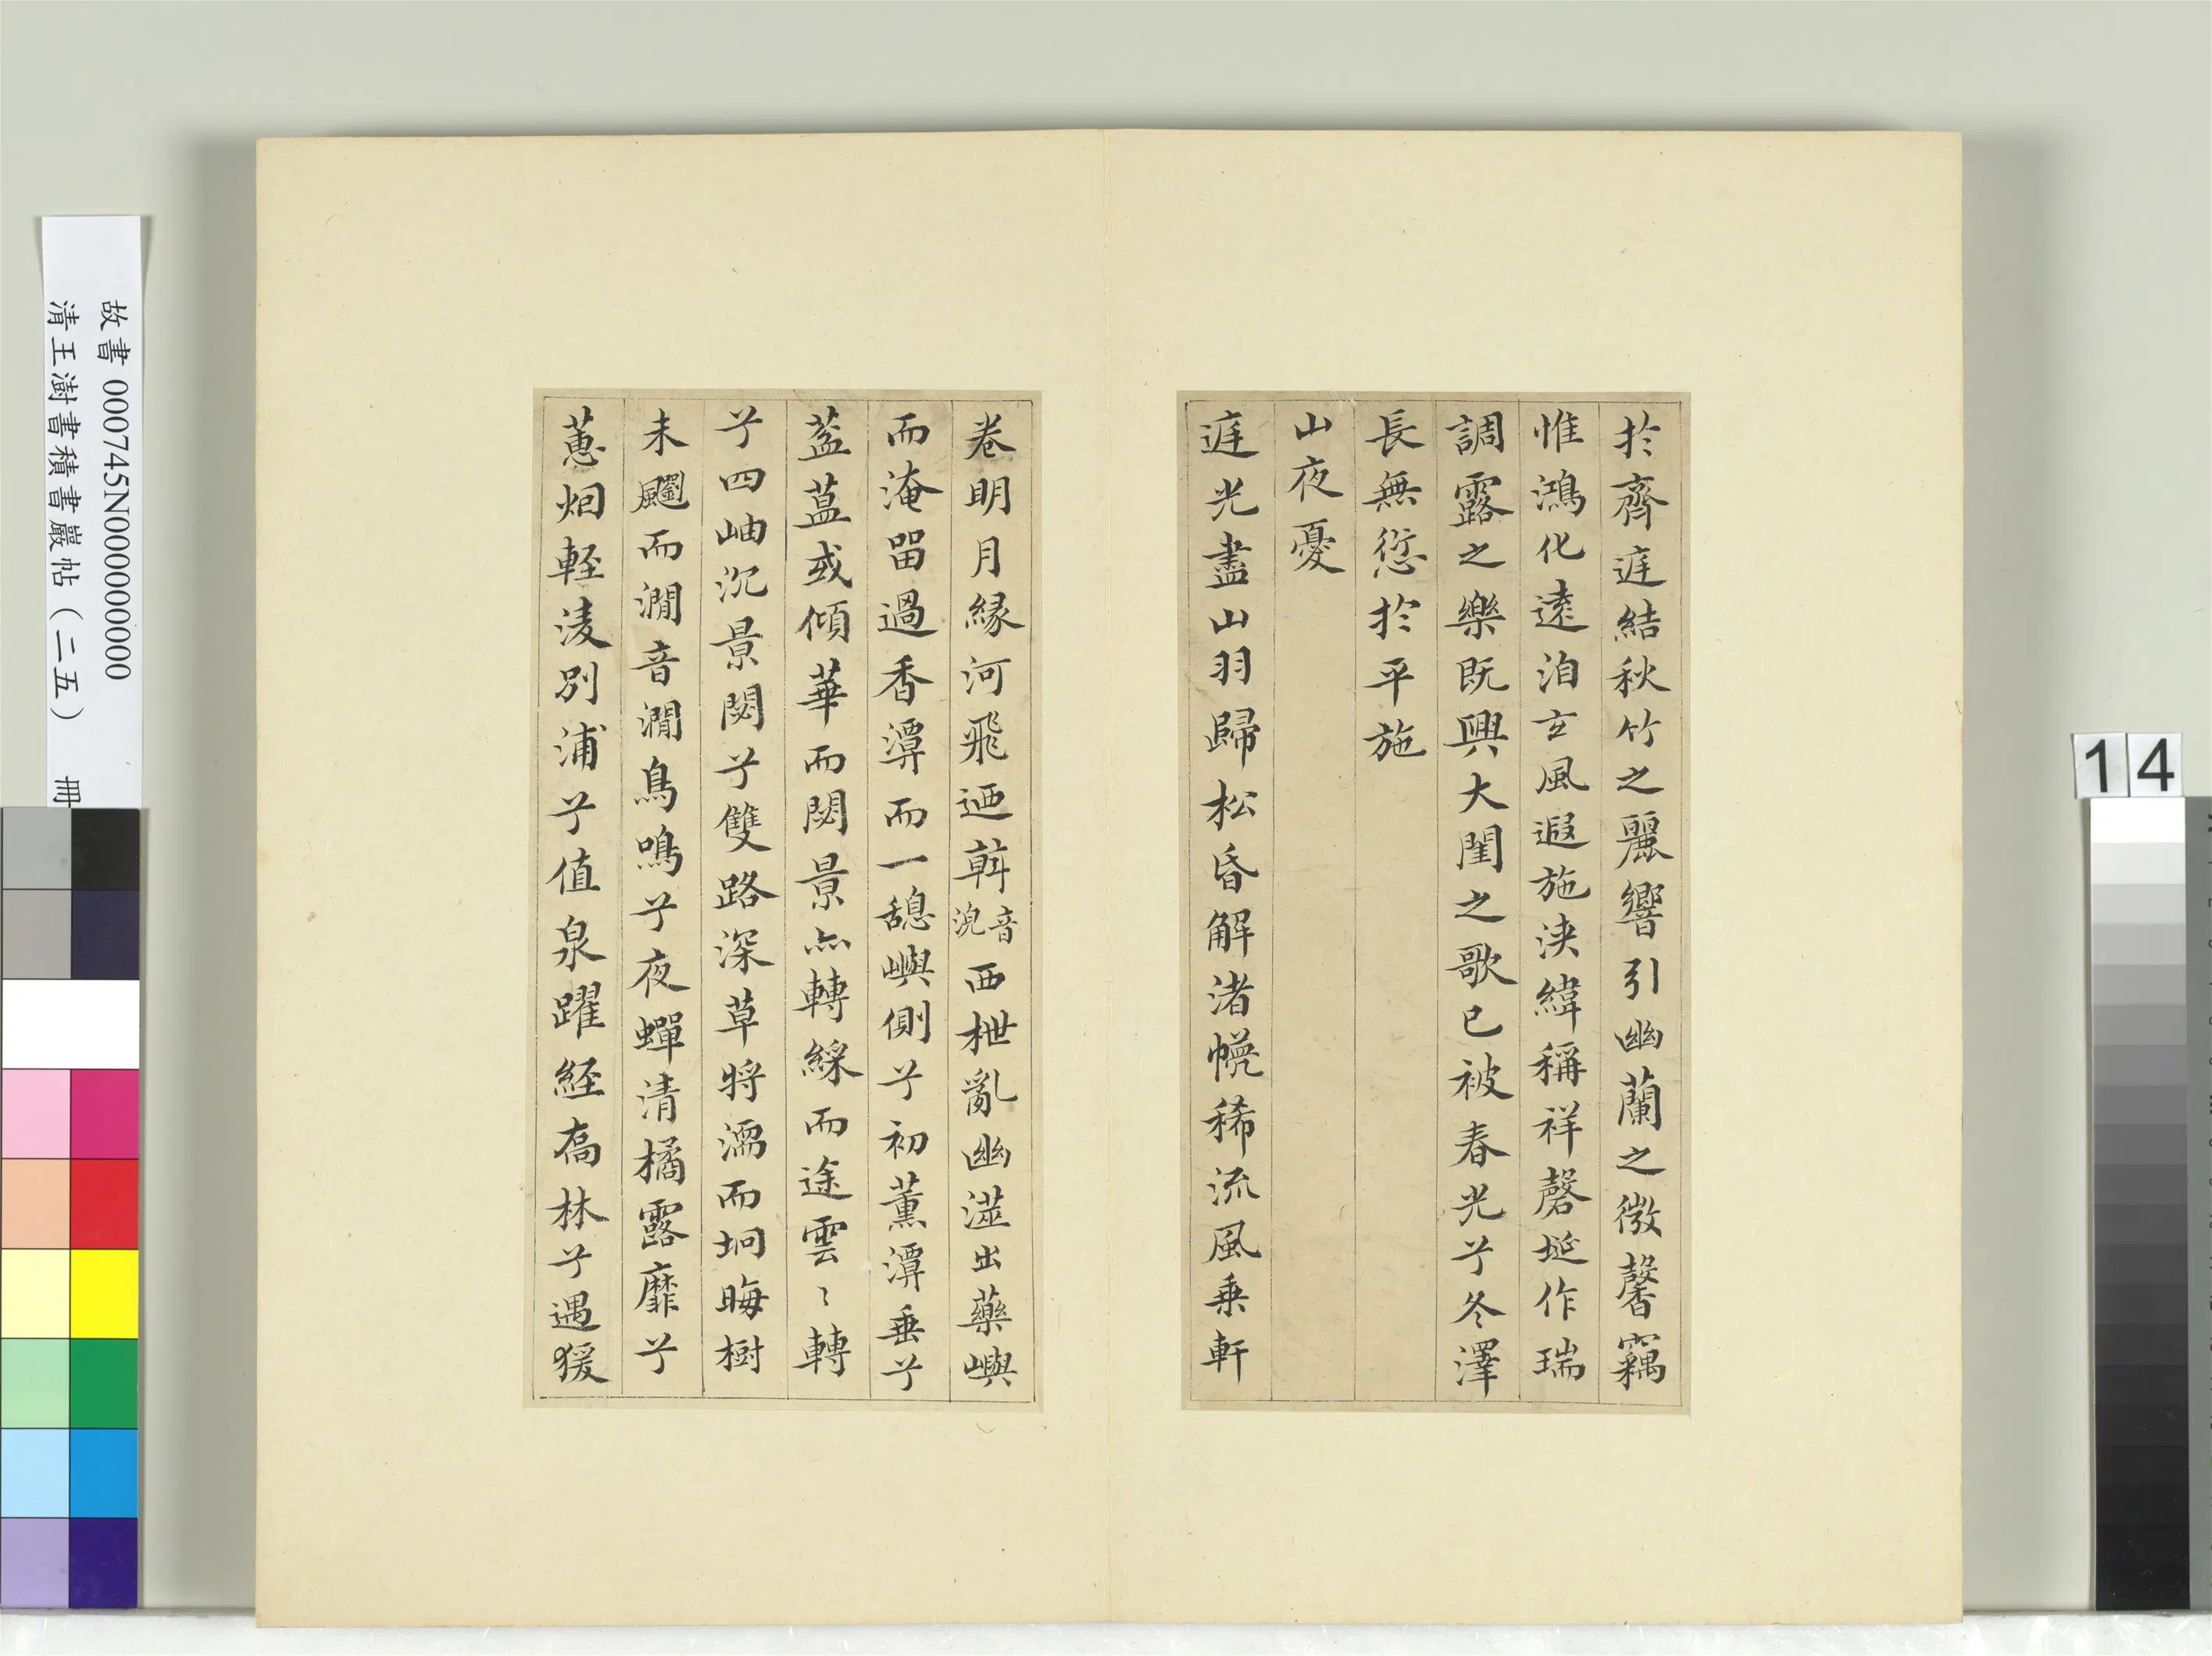 於齊庭結秋竹之麗響引幽蘭之微馨竊
惟鴻化遠洎玄風遐施浹緯稱祥罄埏作瑞
調露之樂既興大閨之歌已被春光兮冬澤
長無愆於平施
山夜憂
庭光盡山羽歸松昏解渚幌稀流風乘軒
卷明月緣河飛迺斡音㳬西枻亂幽澨出藥嶼
而淹留過香潭而一憩嶼側兮初薰潭垂兮
葢葢或傾華而閟景亦轉綵而途雲〻轉
兮四岫沉景閟兮雙路深草將濡而坰晦樹
未飀而澗音澗鳥鳴兮夜蟬清橘露靡兮
蕙烟輕淩別浦兮值泉躍經喬林兮遇猨
故書 000745N000000000
清王澍書積書巖帖（二五） 冊
14